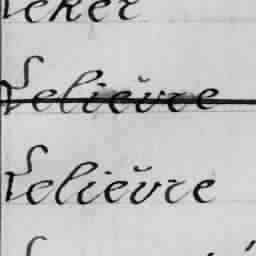 Leker
Lelièvre
Lelièvre